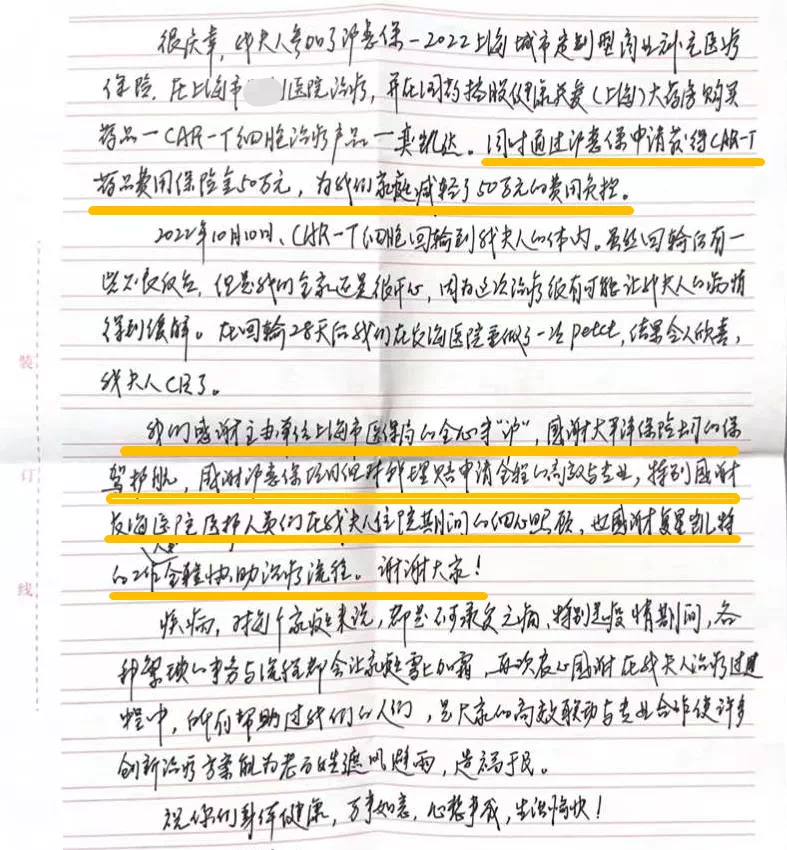 很庆幸，我夫人参加了沪惠保—2022上海城市定制型商业补充医疗
保险，在上海市 医院治疗，并在国药控股健康关爱（上海）大药房购买
药品—CAR-T细胞治疗产品—奕凯达。同时通过沪惠保申请获得CAR-T
药品费用保险金50万元，为我们家庭减轻了50万元的费用负担。
2022年10月10日、CAR-T细胞回输到我夫人的体内。虽然回输后有一
些不良反应，但是我们全家还是很开心，因为这次治疗很有可能让我夫人的病情
得到缓解。在回输28天后我们在 医院里做了一次petct，结果令人欣喜，
我夫人CR了。
我们感谢主办单位上海市医保局的全心守“沪”，感谢太平洋保险公司的保
驾护航，感谢沪惠保 理赔申请全程的高效与专业，特别感谢
医院医护人员们在我夫人住院期间的细心照顾，也感谢复星凯特
的工作人员全程协助治疗流程。谢谢大家！
疾病，对每个家庭来说，都是不可承受之痛，特别是疫情期间，各
种繁琐的事务与流程都会让家庭雪上加霜，再次衷心感谢在我夫人治疗过
程中，所有帮助过我们的人们，是大家的高效联动与专业合作使许多
创新治疗方案能为老百姓遮风避雨，造福于民。
祝你们身体健康，万事如意，心想事成，生活愉快！
装
订
线